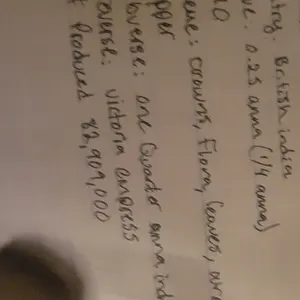 try: British india
ue: 0.25 anna (1/4 anna)
eme: crowns, Flora, leaves,
pper
bverse: one Quarter anna, ind
everse: victoria empress
Produced 82,909,000